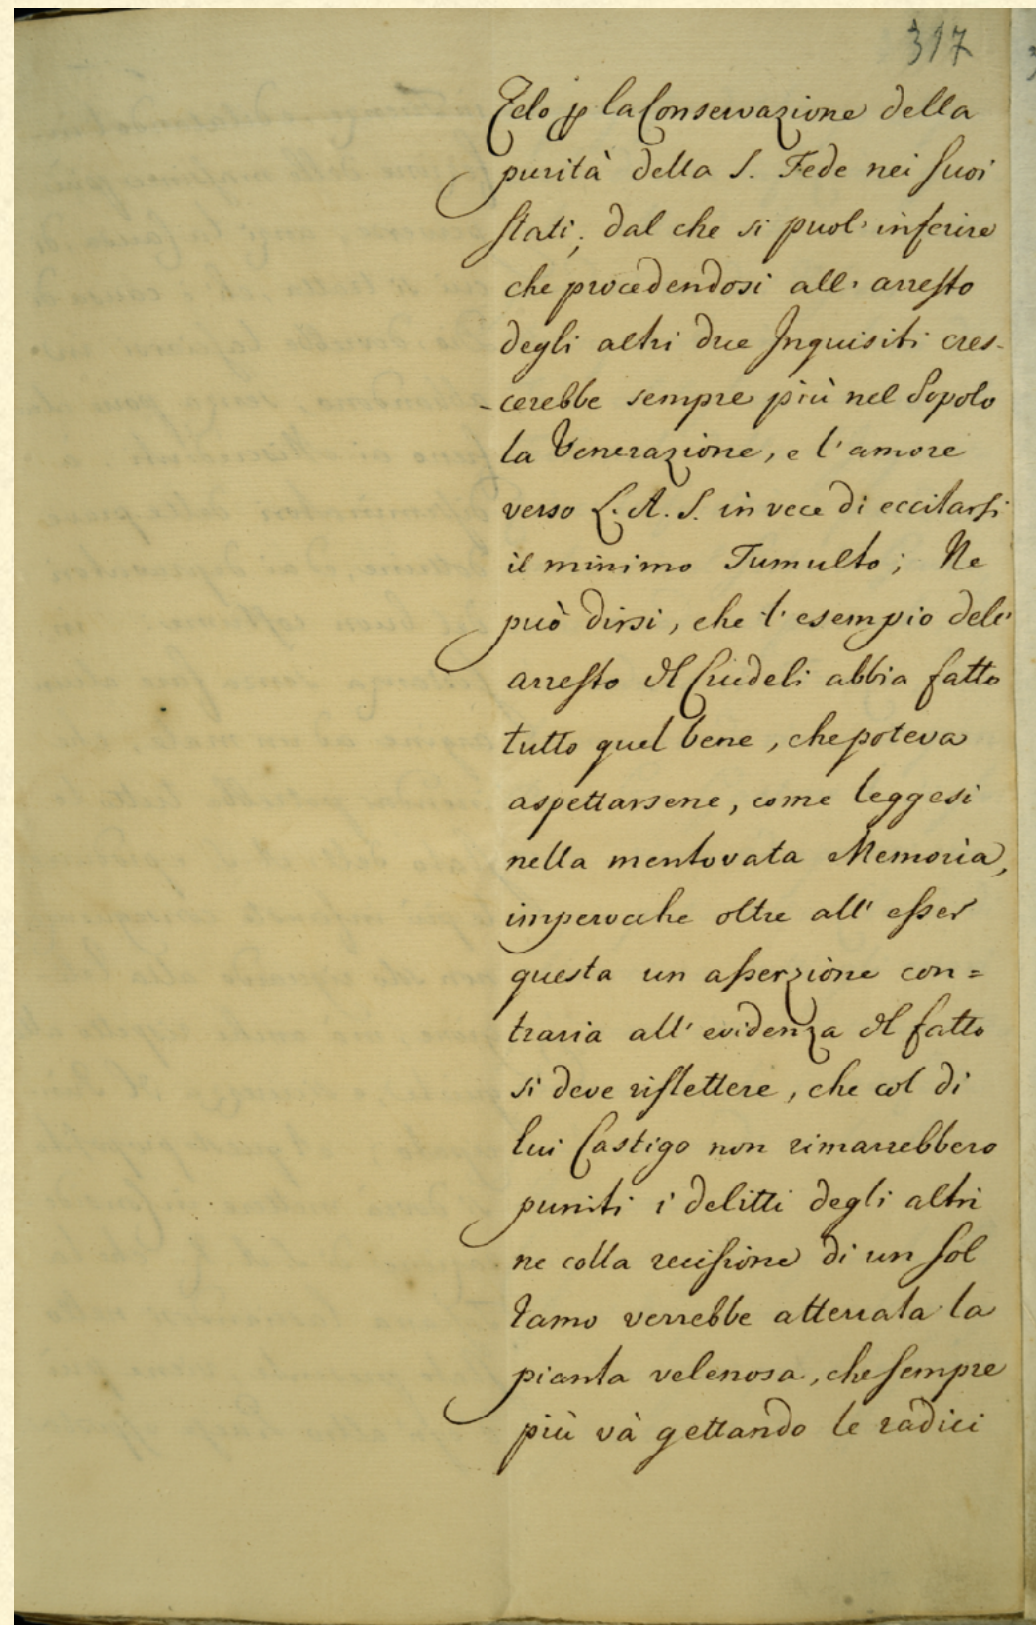 317
Zelo p la Conservazione della
purità della S. Fede nei suoi
stati; dal che si puol' inferire
che procedendosi all' arresto
degli altri due Inquisiti cres-
-cerebbe sempre più nel Popolo
la Venerazione, e l'amore
verso L. A. S. in vece di eccitarsi
il minimo Tumulto; Ne
può dirsi, che l'esempio dell'
arresto del Crudeli abbia fatto
tutto quel bene, che poteva
aspettarsene, come leggesi
nella mentovata Memoria,
imperoche oltre all' esser
questa un asserzione con=
traria all' evidenza del fatto
si deve riflettere, che col di
lui Castigo non rimarrebbero
puniti i delitti degli altri
ne colla recisione di un sol
Ramo verrebbe atterrata la
pianta velenosa, che sempre
più và gettando le radici